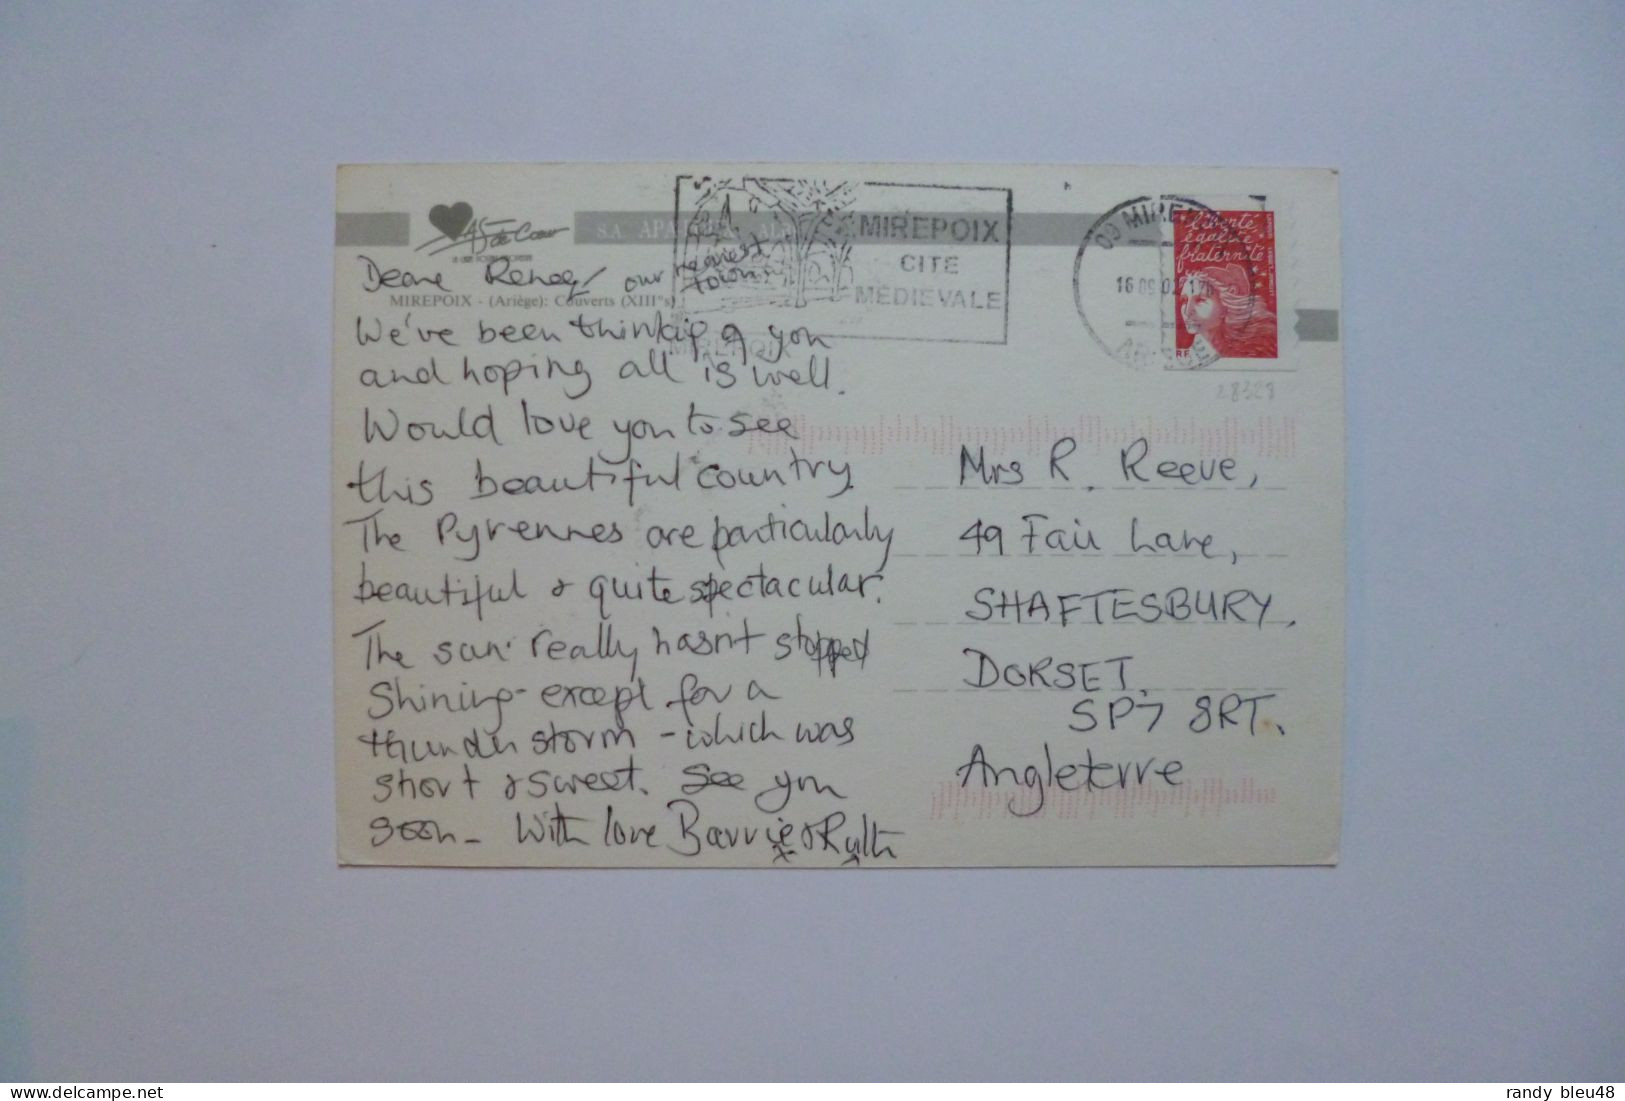 AS de Coeur
S.A. APA
MIREPOIX
CITE
MEDIEVALE
09 MIRE
16 09 02
liberté
égalité
fraternité
RF
28329
Deare Renee/ our nearest
town.
MIREPOIX - (Ariège): Couverts (XIII°s)
We've been thinking of you
MIREPOIX
and hoping all is well.
Would love you to see
this beautiful country.
The Pyrennes are particularly
beautiful & quite spectacular.
The sun really hasn't stopped
shining - except for a
thunder storm - which was
short & sweet. See you
soon - With love Barrie & Ruth
x x
Mrs R. Reeve,
49 Fair Lane,
SHAFTESBURY,
DORSET.
SP7 8RT.
Angleterre
randy bleu48